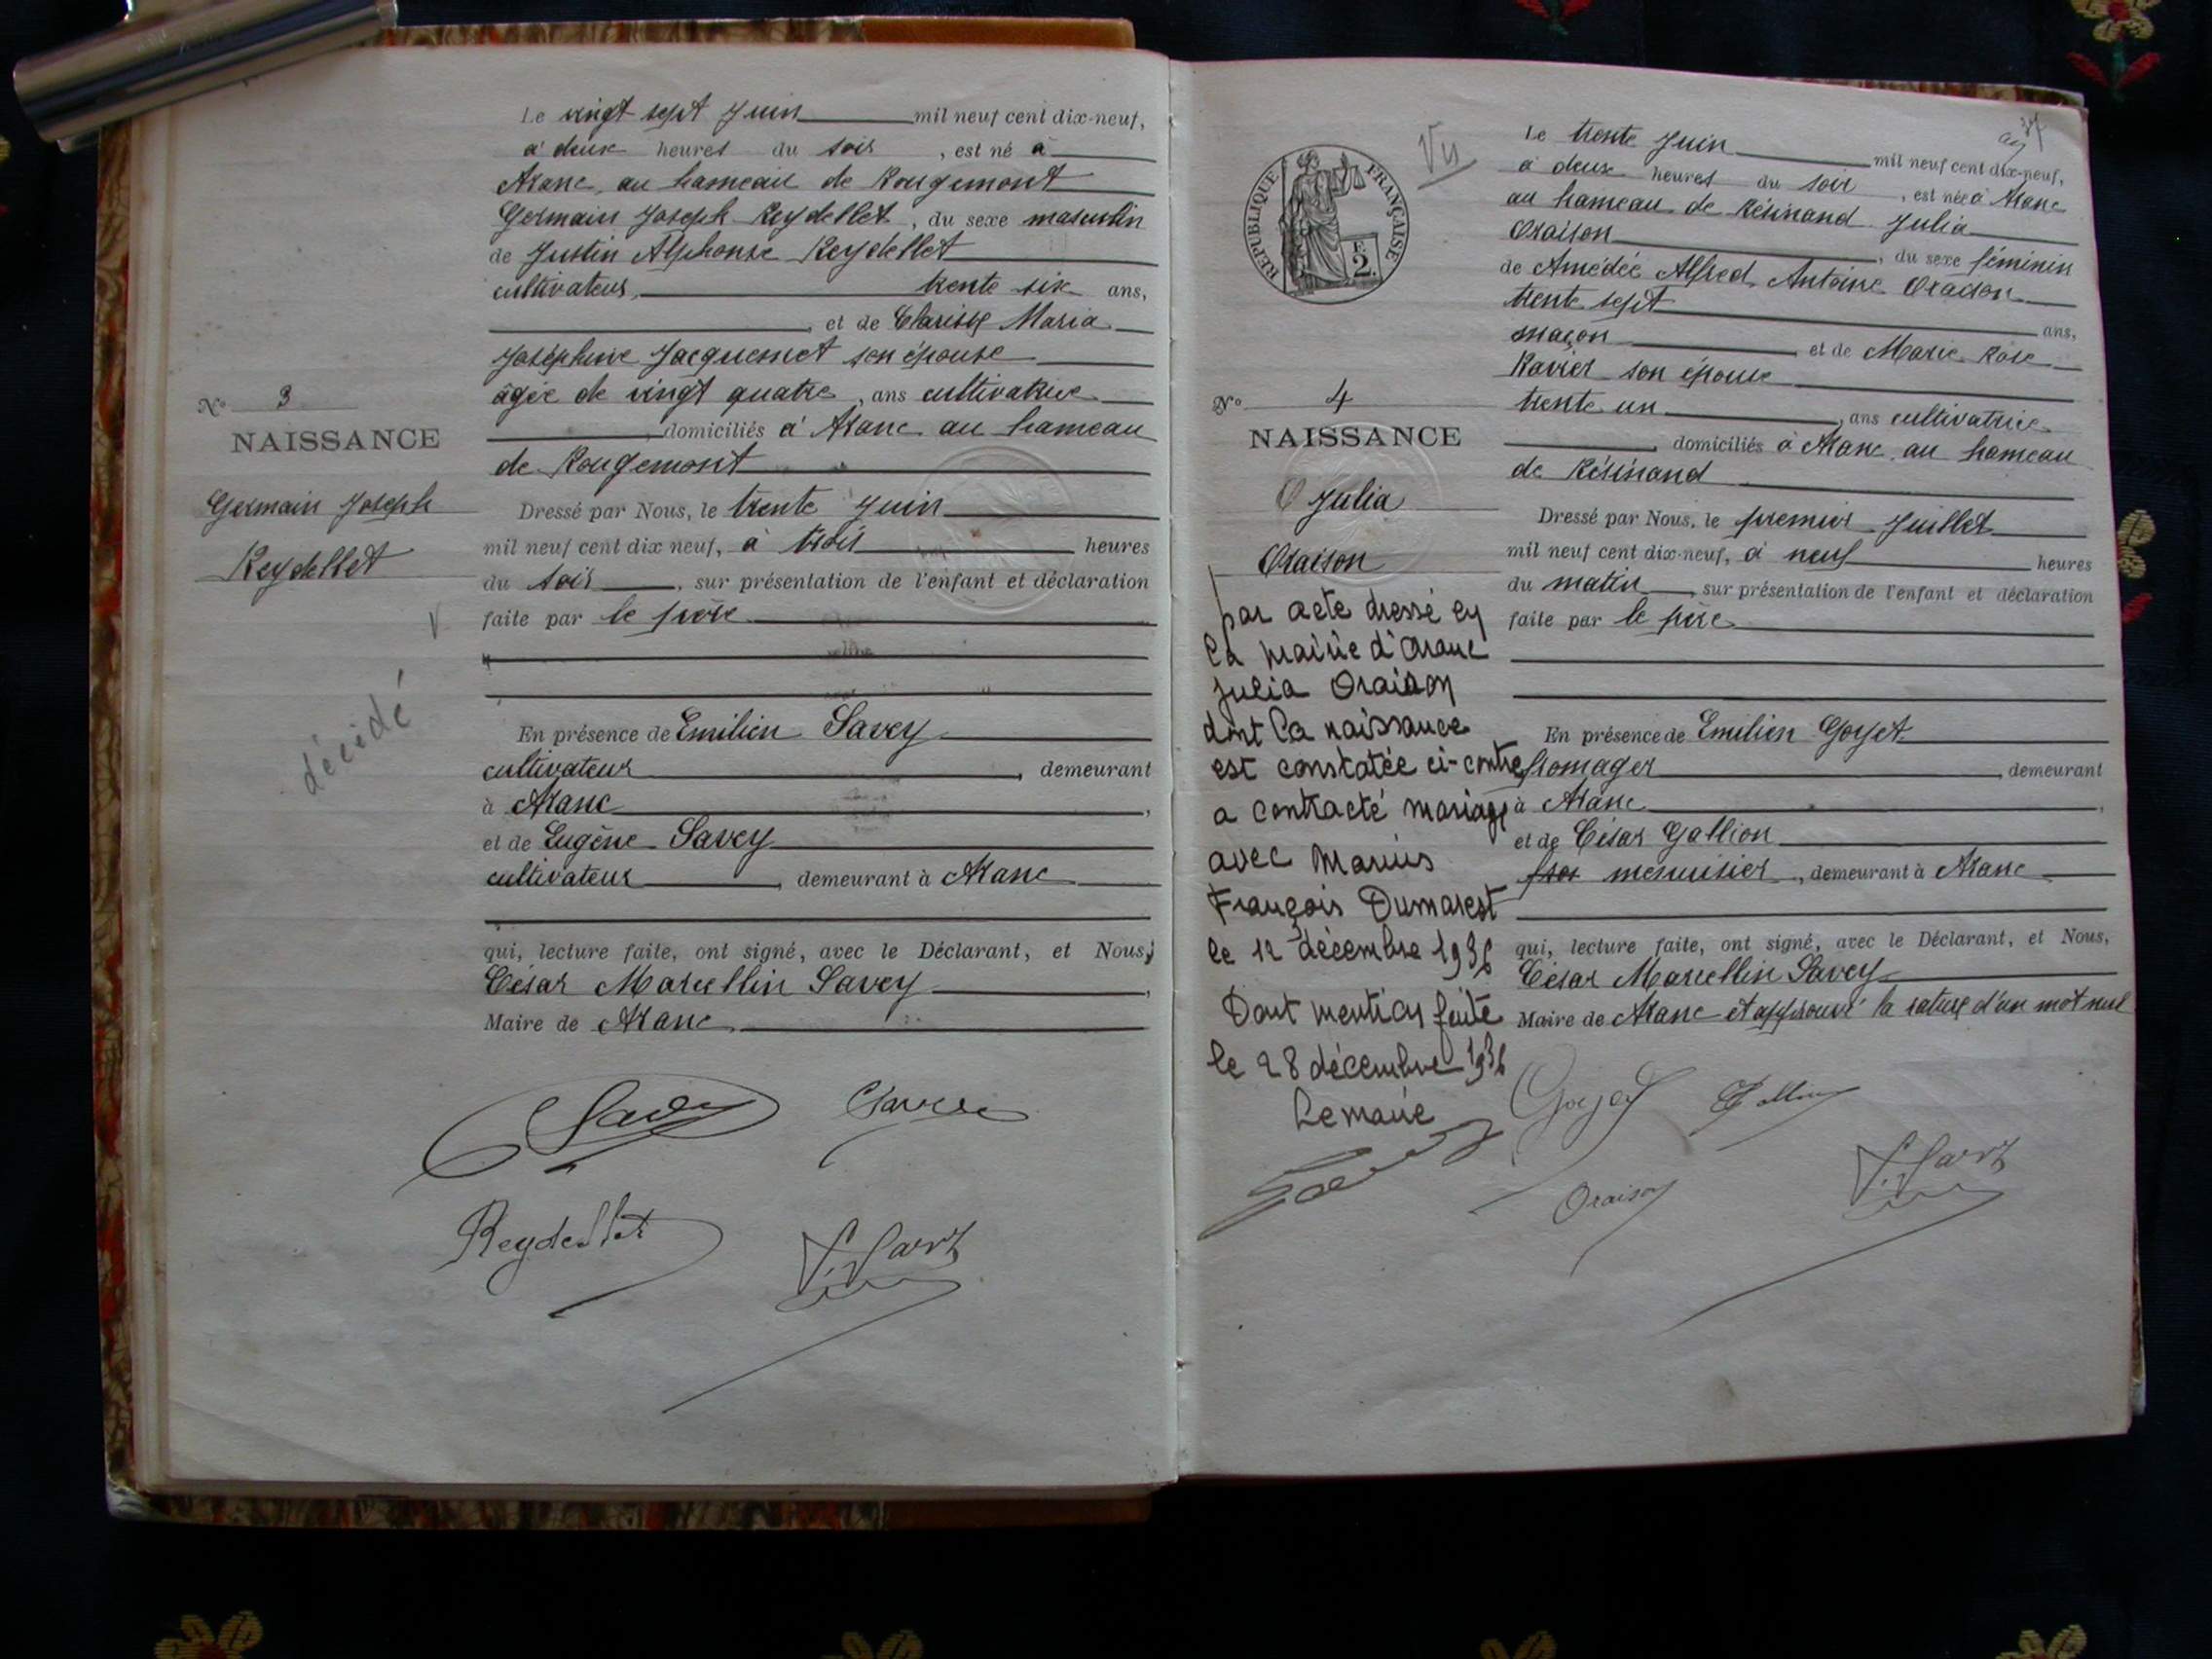 Le vingt sept Juin mil neuf cent dix-neuf,
à deux heures du soir, est né à
Aranc, au hameau de Rougemont
Germain Joseph Reydellet, du sexe masculin
de Justin Alphonse Reydellet
cultivateur, trente six ans,
, et de Clarisse Maria
Joséphine Jacquemet son épouse
âgée de vingt quatre, ans cultivatrice
, domiciliés à Aranc au hameau
de Rougemont
N° 3
NAISSANCE
Germain Joseph
Reydellet
décidé
Dressé par Nous, le trente Juin
mil neuf cent dix neuf, à trois heures
du soir, sur présentation de l'enfant et déclaration
faite par le père
En présence de Emilien Savey
cultivateur, demeurant
à Aranc,
et de Eugène Savey
cultivateur, demeurant à Aranc
qui, lecture faite, ont signé, avec le Déclarant, et Nous,
César Marcellin Savey,
Maire de Aranc
Savey
Reydellet
37
Vu
RÉPUBLIQUE FRANÇAISE
F.
2.
Le trente Juin mil neuf cent dix-neuf,
à deux heures du soir, est née à Aranc
au hameau de Résinand Julia
Oraison, du sexe féminin
de Amédée Alfred Antoine Oraison
trente sept ans,
maçon et de Marie Rose
Ravier son épouse
trente un, ans cultivatrice
, domiciliés à Aranc au hameau
de Résinand
N° 4
NAISSANCE
Julia
Oraison
par acte dressé en
la mairie d'Aranc
Julia Oraison
dont la naissance
est constatée ci-contre
a contracté mariage
avec Marius
François Dumarest
le 12 décembre 1936
Dont mention faite
le 28 décembre 1936
Le maire
Dressé par Nous, le premier Juillet
mil neuf cent dix-neuf, à neuf heures
du matin, sur présentation de l'enfant et déclaration
faite par le père
En présence de Emilien Goyet
fromager, demeurant
à Aranc,
et de César Gallion
menuisier, demeurant à Aranc
qui, lecture faite, ont signé, avec le Déclarant, et Nous,
César Marcellin Savey
Maire de Aranc et approuvé la rature d'un mot nul
Goyet
Oraison